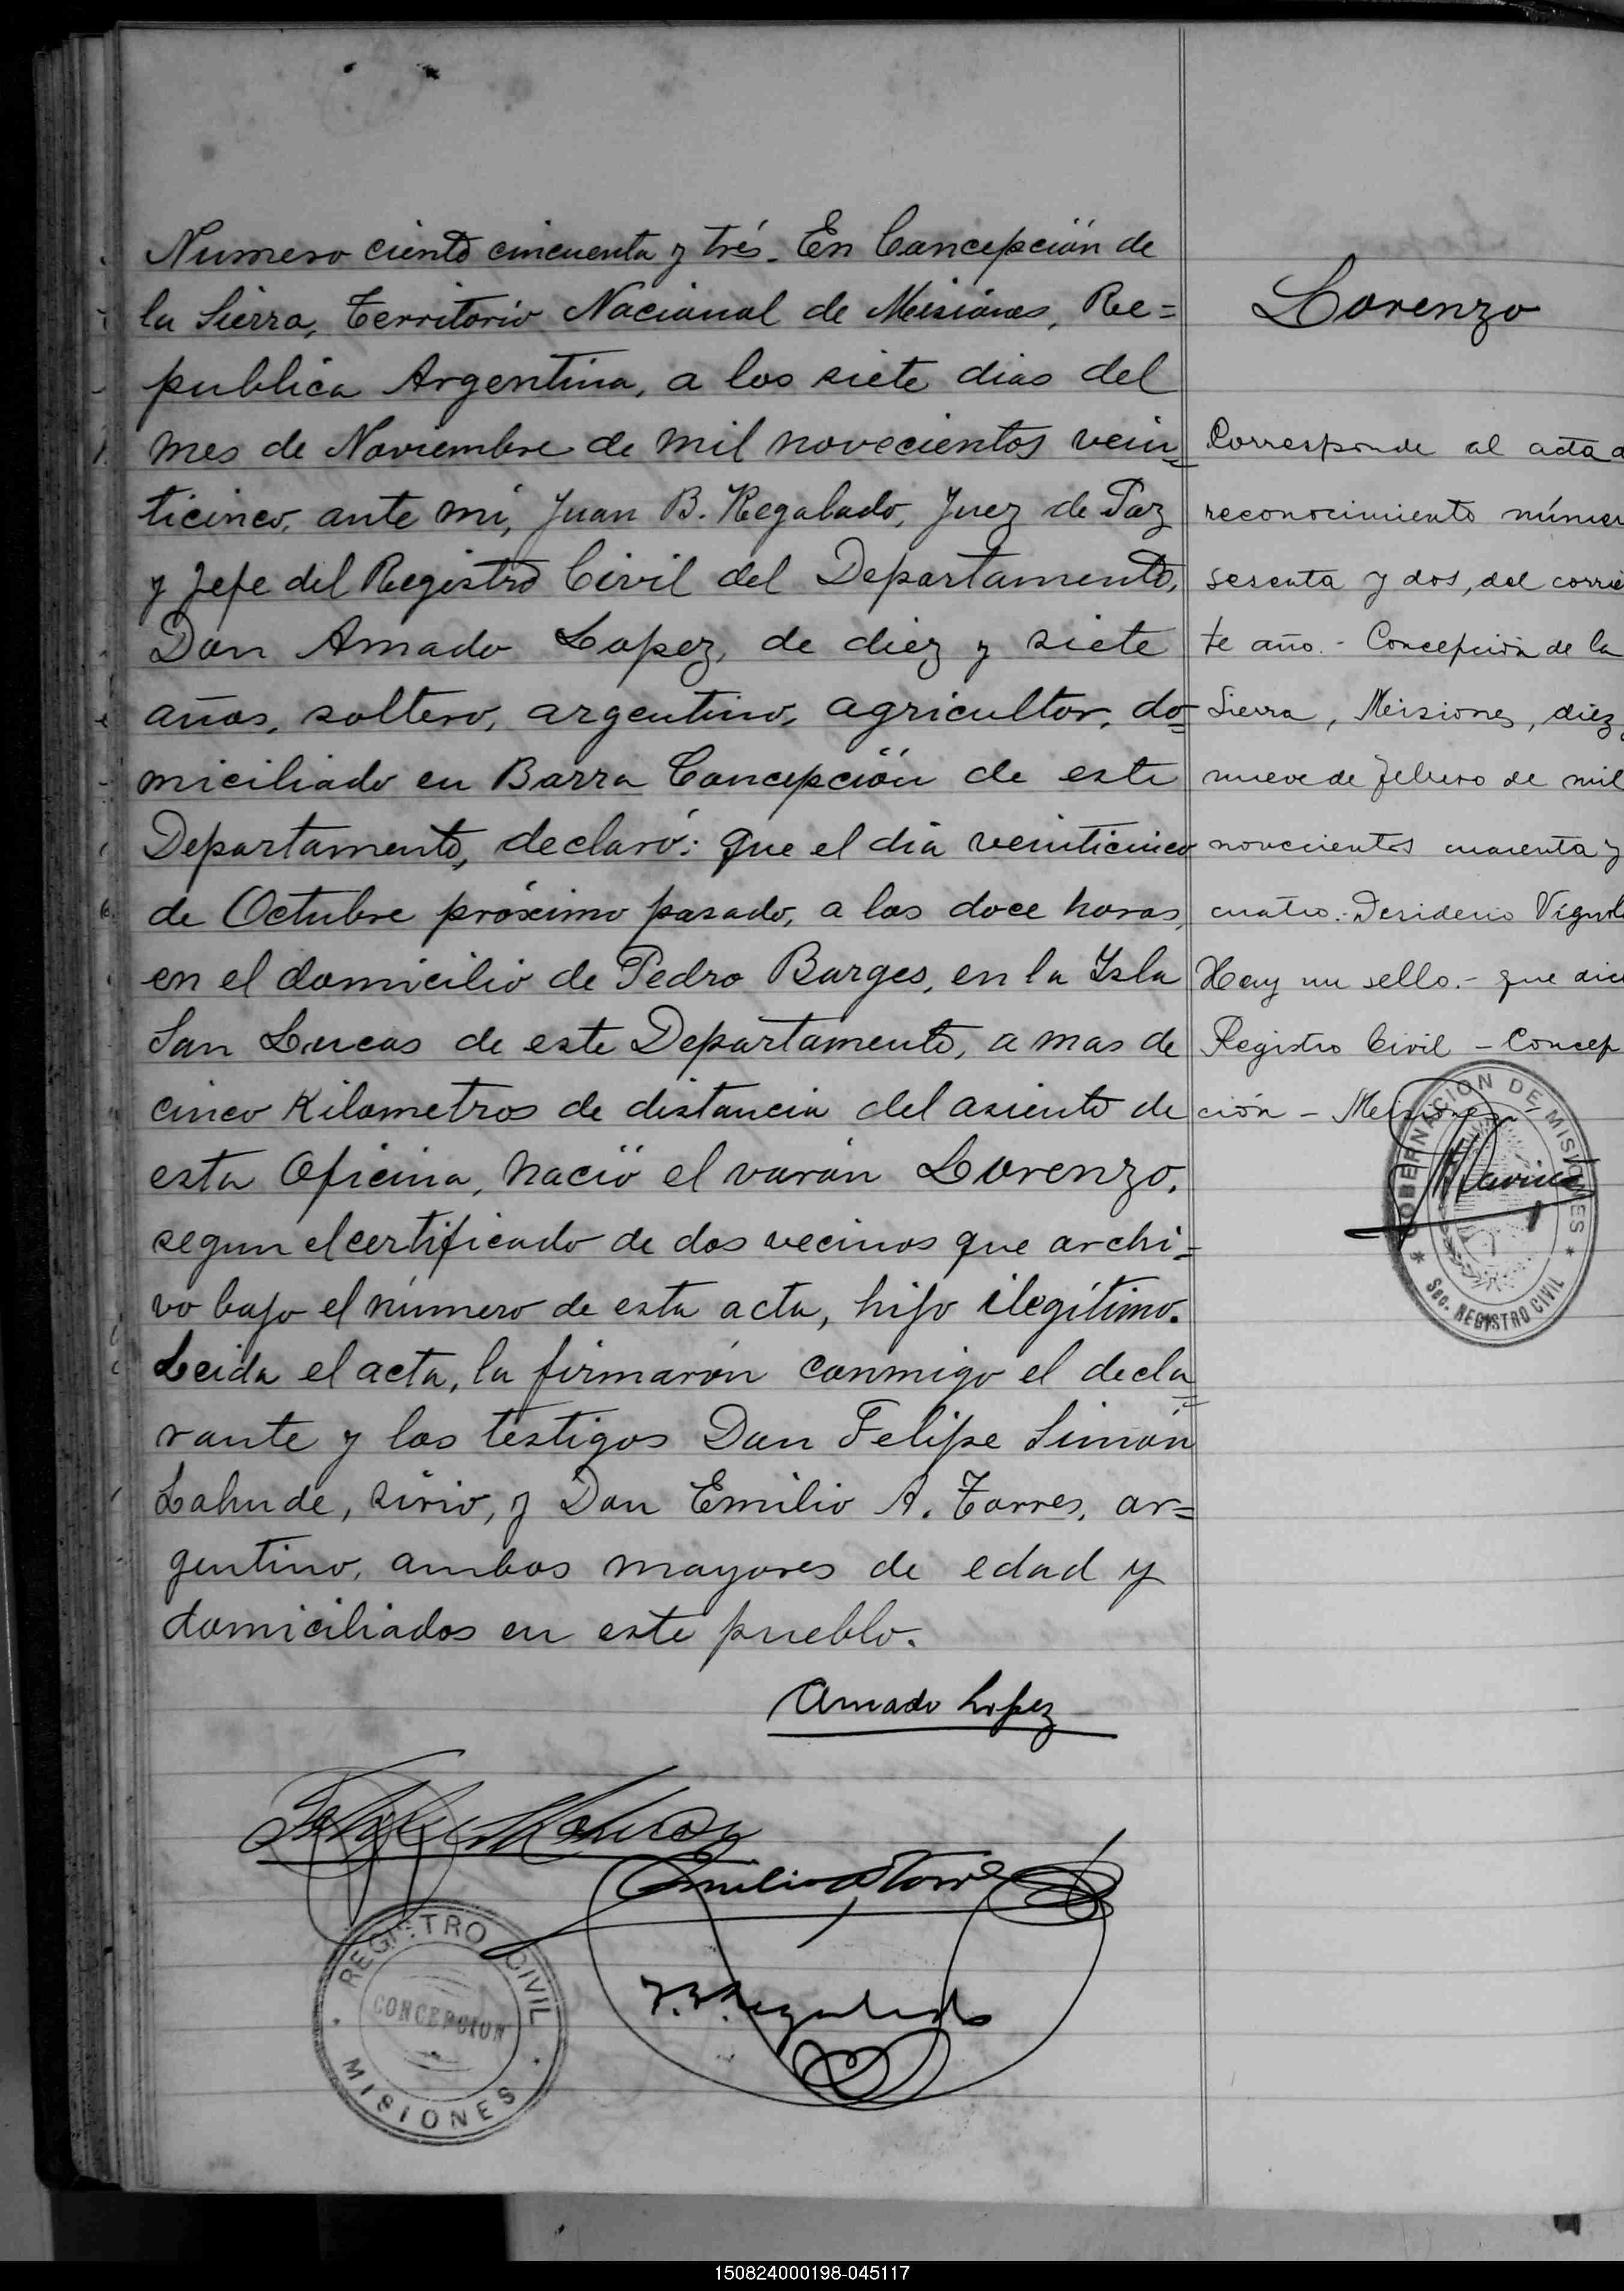 Numero ciento cincuenta y trés. En Concepción de
la Sierra, Territorio Nacional de Misiones, Re=
publica Argentina, a los siete dias del
mes de Noviembre de mil novecientos vein=
ticinco, ante mi, Juan B. Regalado, Juez de Paz
y Jefe del Registro Civil del Departamento,
Don Amado Lopez, de diez y siete
años, soltero, argentino, agricultor, do=
miciliado en Barra Concepción de este
Departamento, declaró: que el dia veinticinco
de Octubre próximo pasado, a las doce horas,
en el domicilio de Pedro Borges, en la Isla
San Lucas de este Departamento, a mas de
cinco Kilometros de distancia del asiento de
esta Oficina, nació el varón Lorenzo,
segun el certificado de dos vecinos que archi=
vo bajo el número de esta acta, hijo ilegítimo.
Leida el acta, la firmarón conmigo el decla=
rante y los testigos Don Felipe Simón
Lahude, sirio, y Don Emilio A. Torres, ar=
gentino, ambos mayores de edad y
domiciliados en este pueblo.
Amado Lopez
Emilio A Torres
J. B. Regalado
REGISTRO CIVIL
CONCEPCION
MISIONES
Lorenzo
Corresponde al acta d
reconocimiento númer
sesenta y dos, del corrie
te año. - Concepción de la
Sierra, Misiones, diez y
nueve de febrero de mil
novecientos cuarenta y
cuatro. Desiderio
Hay un sello. - que dice
Registro Civil - Concep
ción - Misiones -
GOBERNACION DE MISIONES
SEC. REGISTRO CIVIL
150824000198-045117